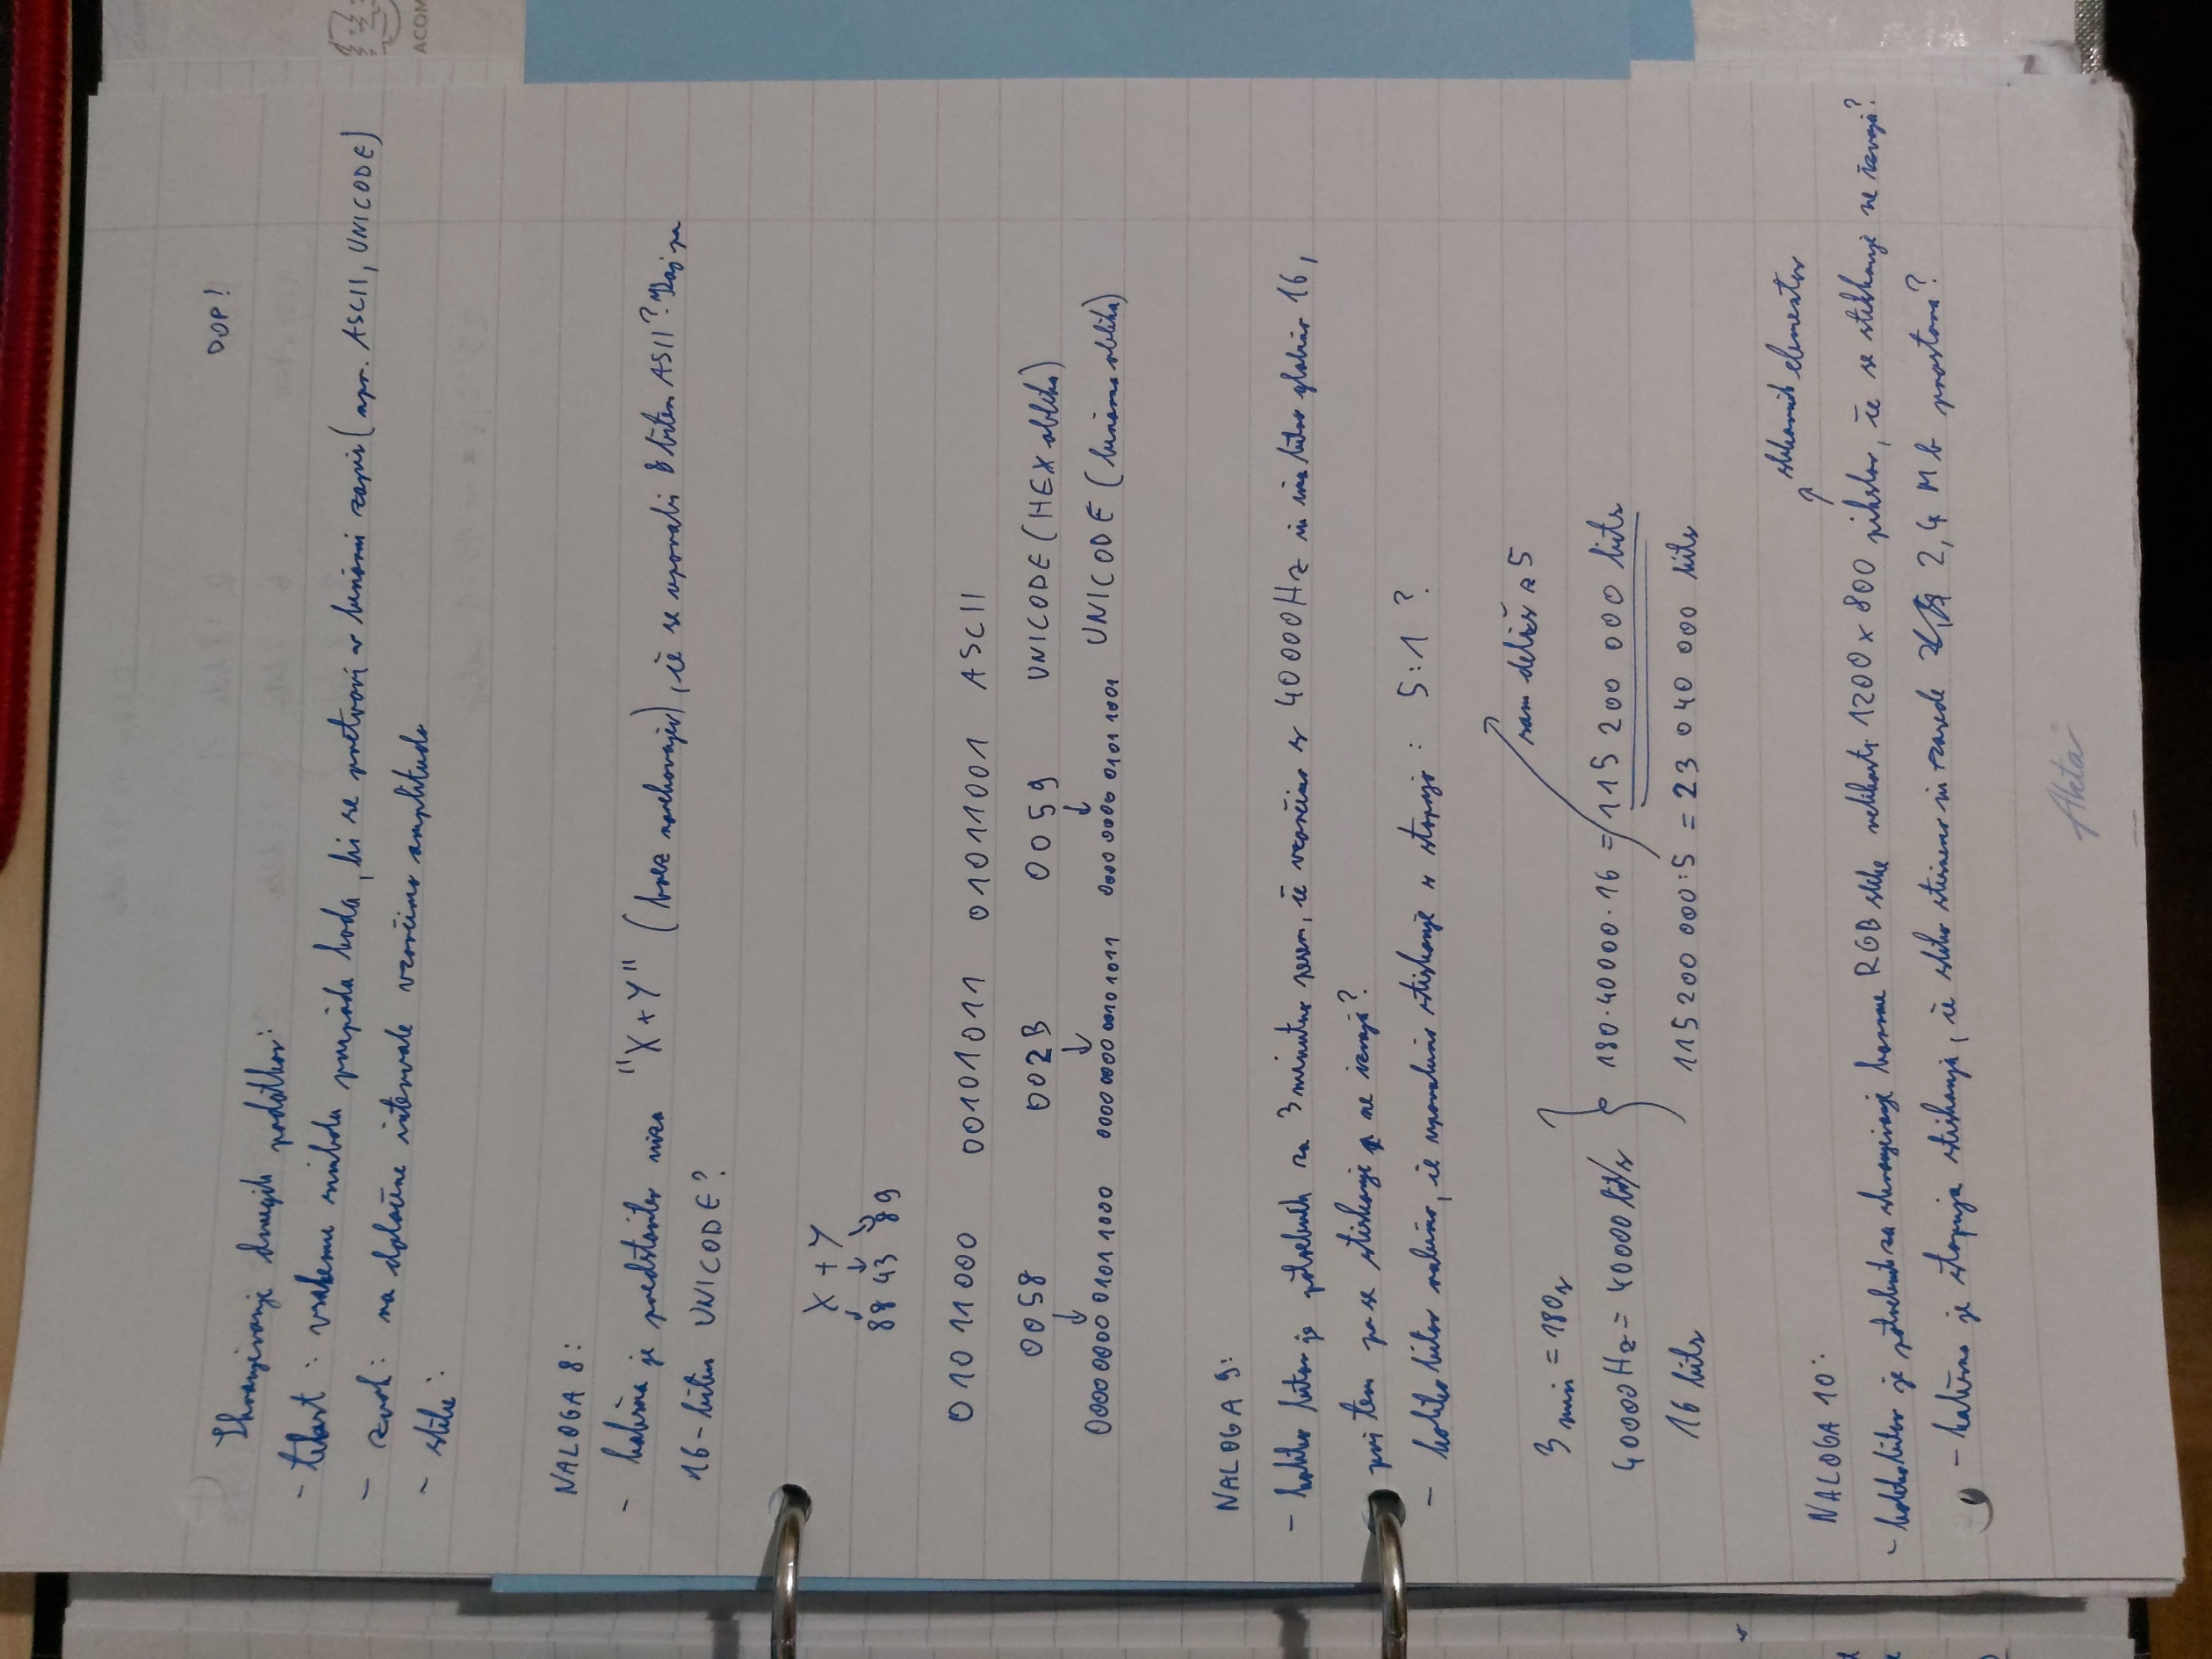 DOP!
Shranjevanje drugih podatkov:
- tekst: vsakemu simbolu pripada koda, ki se pretvori v binarni zapis (npr. ASCII, UNICODE)
- zvok: na določene intervale vzorčimo amplitudo
- slike:
NALOGA 8:
- kakšna je predstavitev niza "X+Y" (brez narekovajev), če se uporabi 8 biten ASII? Kaj pa
16-biten UNICODE?
X + Y
88 43 89
01011000 00101011 01011001 ASCII
0058 002B 0059 UNICODE (HEX oblika)
0000 0000 0101 1000 0000 0000 0010 1011 0000 0000 0101 1001 UNICODE (binarna oblika)
NALOGA 9:
- koliko bitov je potrebnih za 3 minutno pesem, če vzorčimo s 40000Hz in ima bitno globino 16,
pri tem pa se stiskanje ne izvaja?
- koliko bitov rabimo, če uporabimo stiskanje s stopnjo: 5:1 ?
sam deliš z 5
3 min = 180s
40000Hz = 40000 bit/s
16 bits
180·40000·16 = 115 200 000 bits
115 200 000:5 = 23 040 000 bits
slikovnih elementov
NALOGA 10:
- koliko bitov je potrebnih za shranjevanje barvne RGB slike velikosti 1200 x 800 pikslov, če se stiskanje ne izvaja?
- kakšna je stopnja stiskanja, če sliko stisnemo in zasede 2,4 Mb prostora?
Akta
ACOM